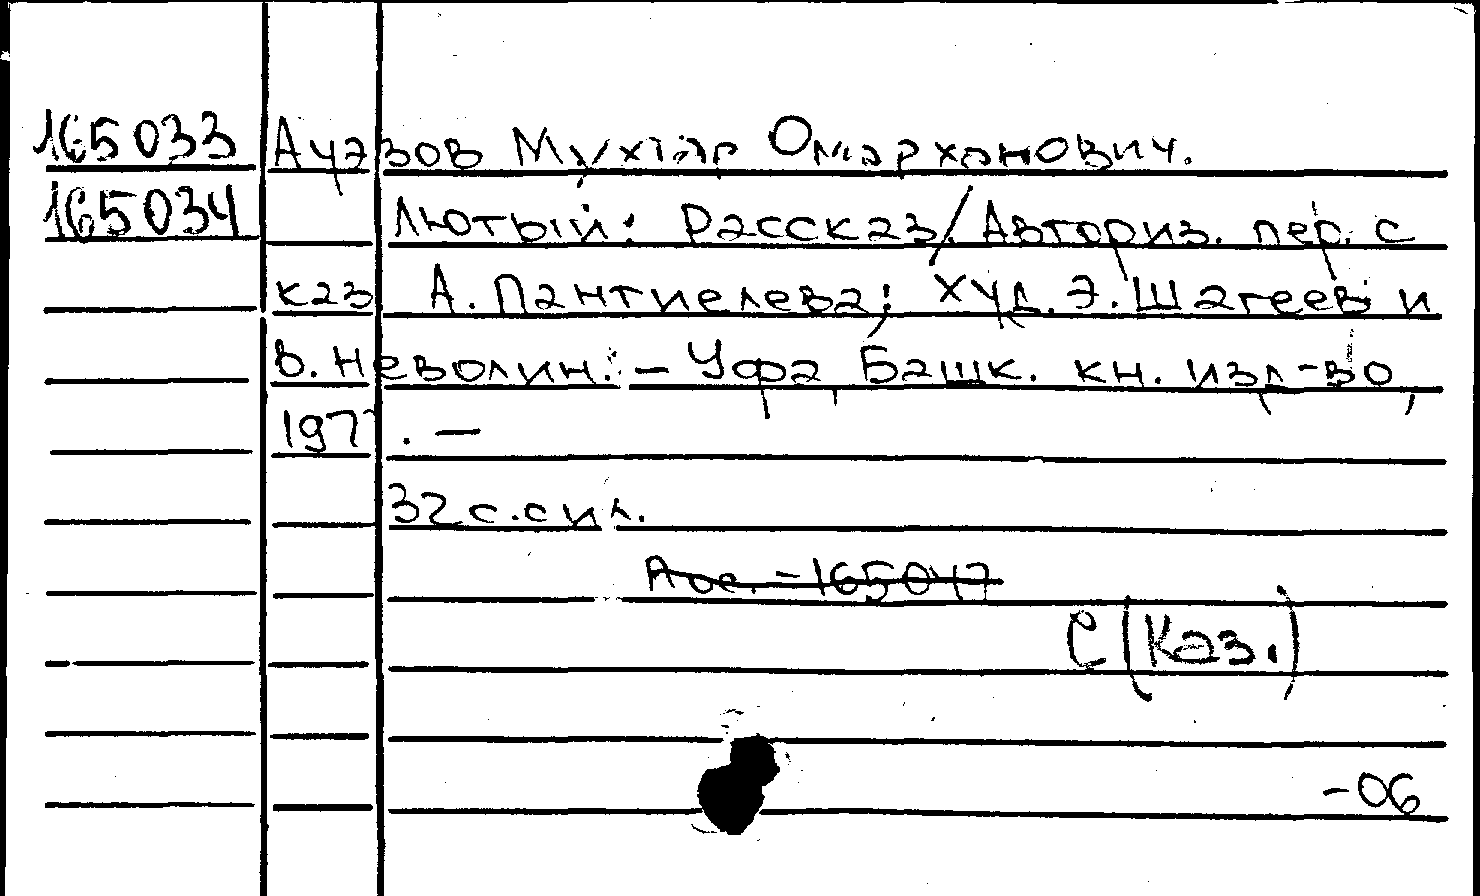 165033 Ауэзов Мухтар Омарханович.
165034 Лютый: Рассказ/Авториз. пер. с
каз А. Пантиелева; худ. Э. Шагеев и
В. Неволин. - Уфа, Башк. кн. изд-во,
1977. -
32 с. с ил.
- 165047
С (Каз.)
-06